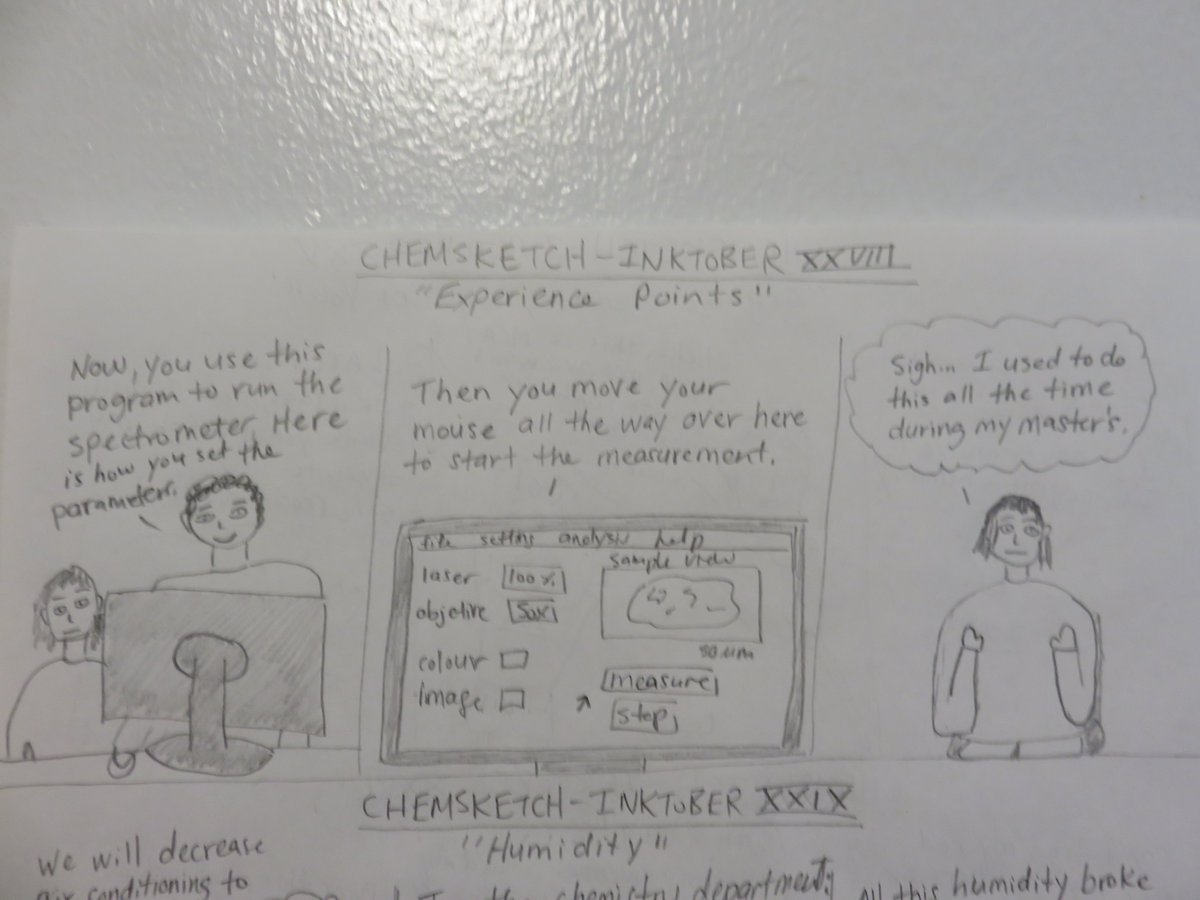 CHEMSKETCH - INKTOBER XXVIII
"Experience Points"
Now, you use this
program to run the
spectrometer. Here
is how you set the
parameters.
Then you move your
mouse all the way over here
to start the measurement.
file setting analysis help
laser 100%
objective 50x
colour
image
sample view
50 um
measure
stop
Sigh... I used to do
this all the time
during my master's.
CHEMSKETCH - INKTOBER XXIX
"Humidity"
We will decrease
air conditioning to
the chemistry department
All this humidity broke